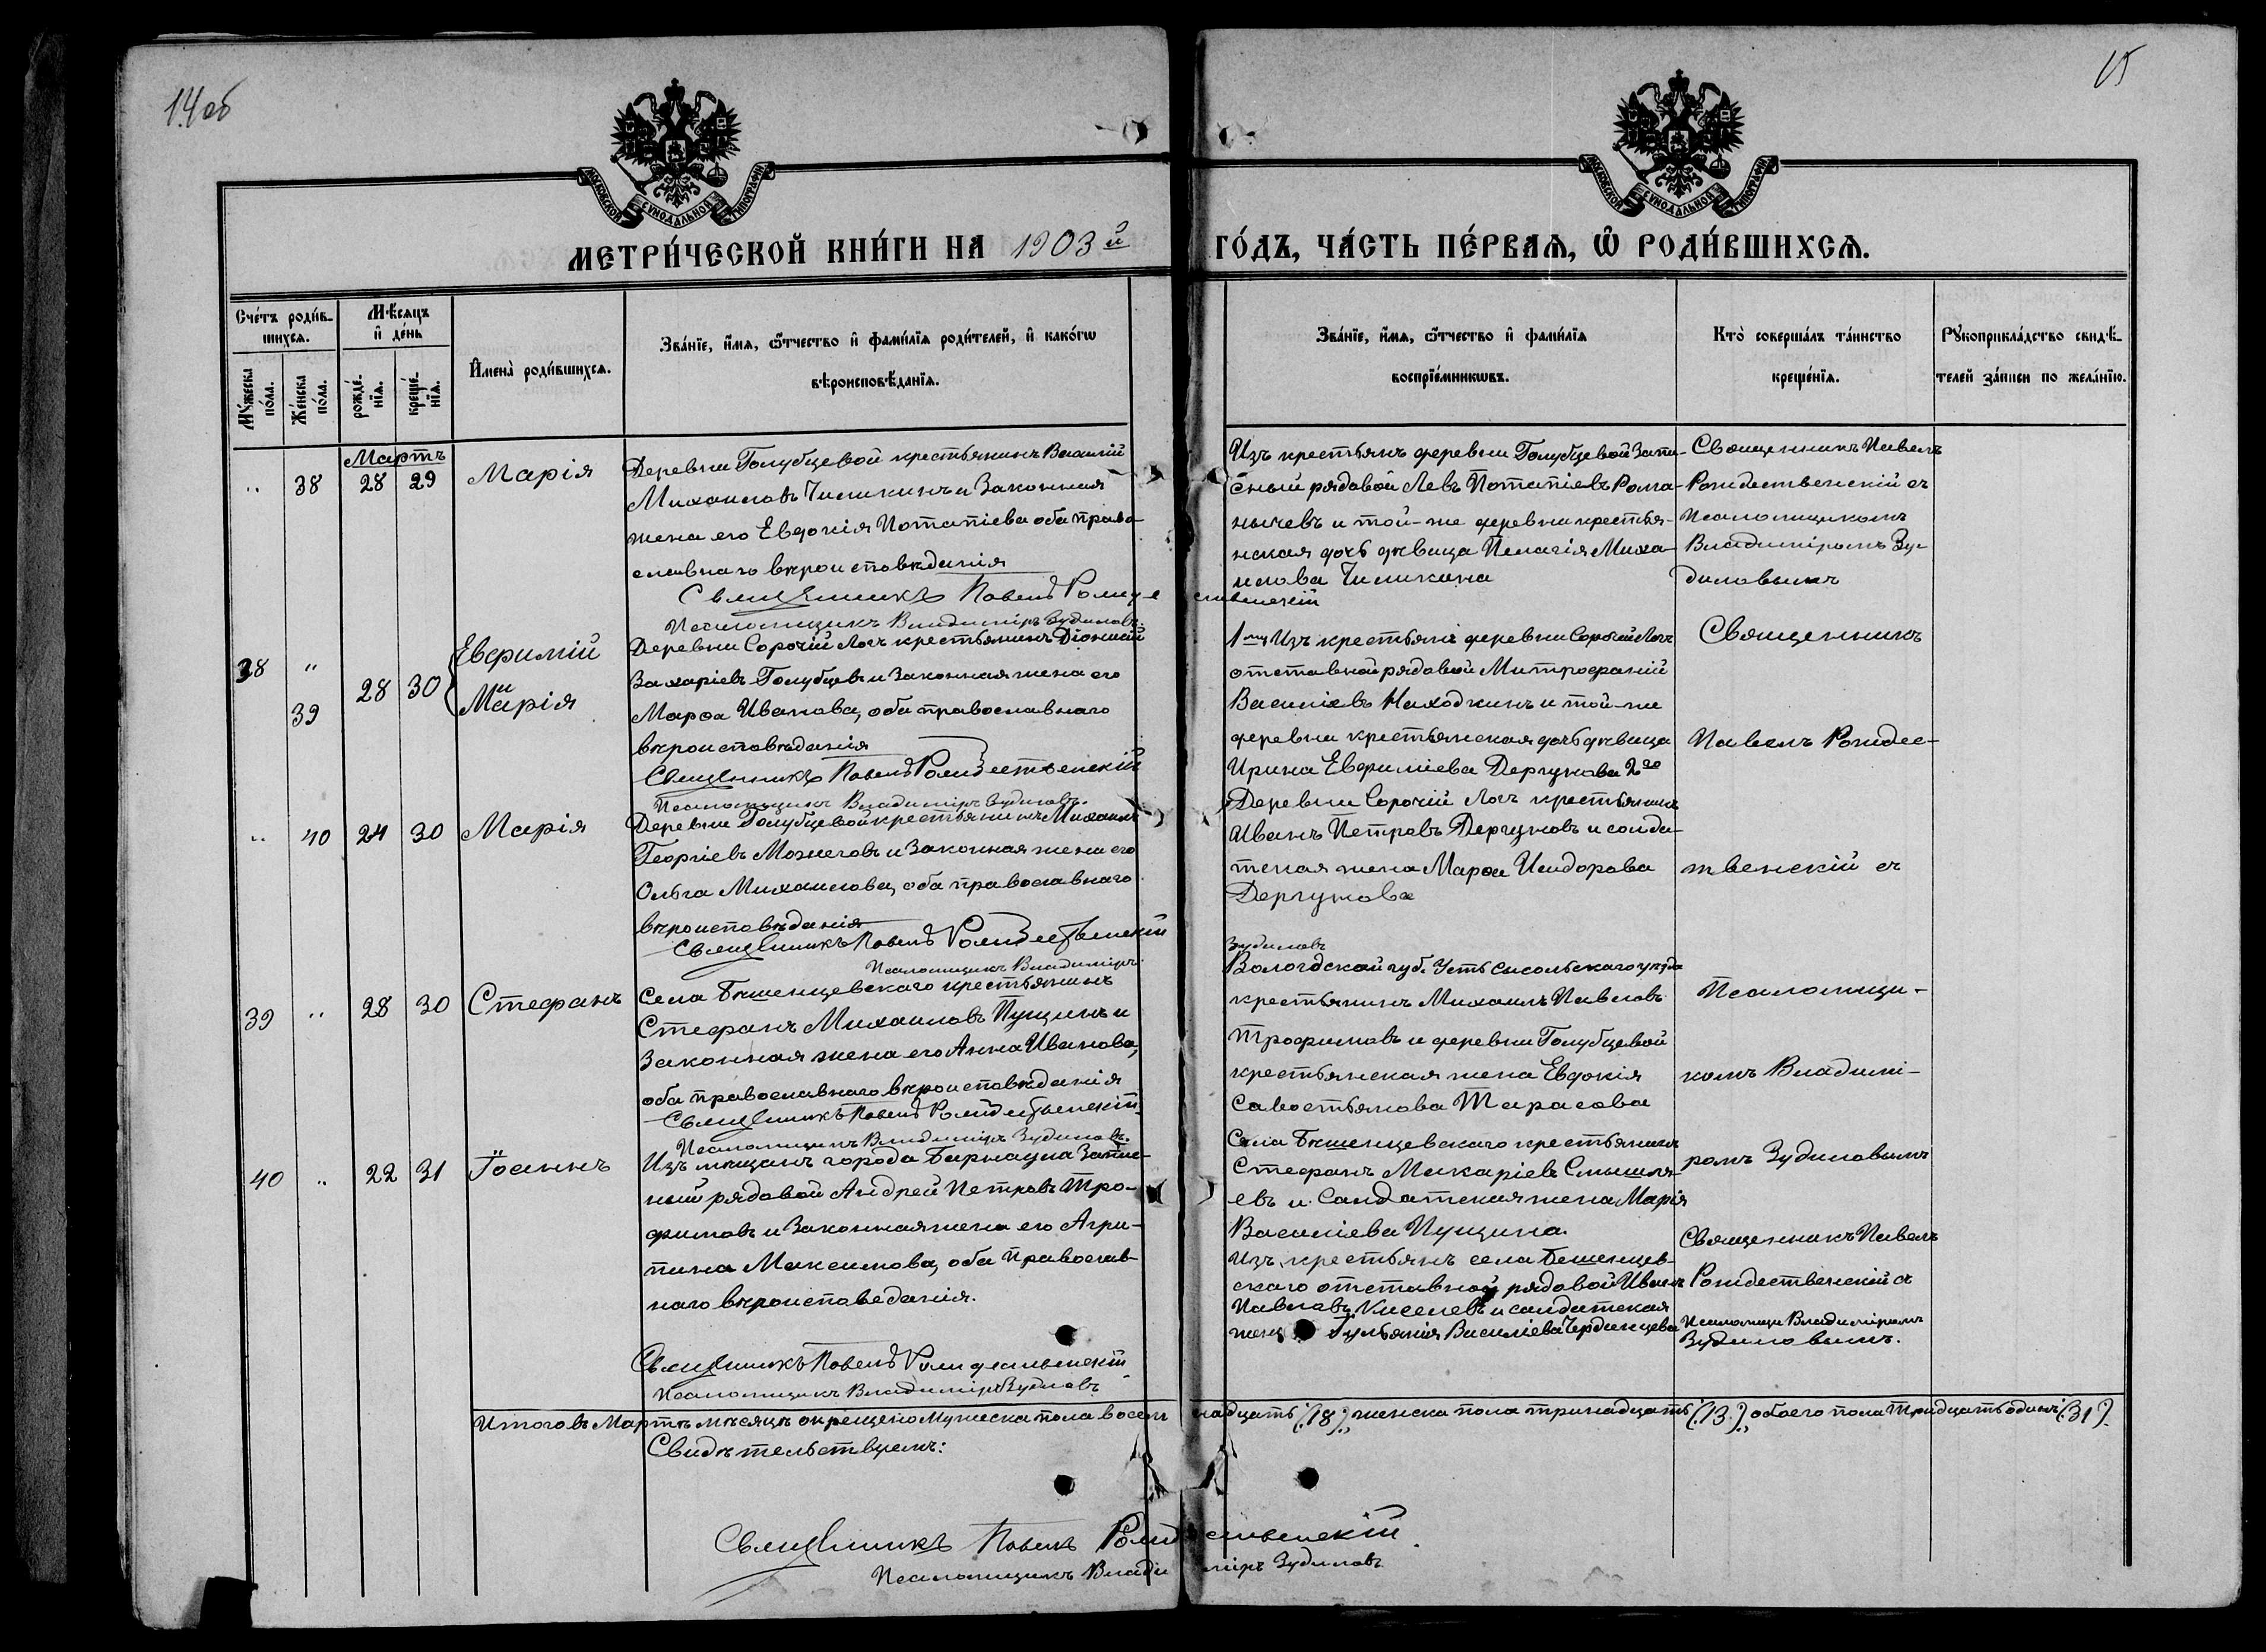 14 об
15
МОСКОВСКОЙ СУНОДАЛЬНОЙ ТИПОГРАФІИ
МОСКОВСКОЙ СУНОДАЛЬНОЙ ТИПОГРАФІИ
МЕТРИ́ЧЕСКОЙ КНИ́ГИ НА 1903 й
ГО́ДЪ, ЧА́СТЬ ПЕ́РВАѦ, Ѡ҆ РОДИ́ВШИХСѦ.
Сче́тъ роди́в-
шихсѧ.
Му́жеска по́ла.
Же́нска по́ла.
Мѣ́сяцъ
и҆ де́нь
рожде́-
нїѧ.
креще́-
нїѧ.
И҆мена̀ роди́вшихсѧ.
Зва́нїе, и҆́мѧ, ѻ҆́тчество и҆ фами́лїѧ роди́телей, и҆ како́гѡ
вѣроисповѣ́данїѧ.
Зва́нїе, и҆́мѧ, ѻ҆́тчество и҆ фами́лїѧ
воспрїе́мникѡвъ.
Кто̀ соверша́лъ та́инство
креще́нїѧ.
Рꙋкоприкла́дство свидѣ́-
телей за́писи по жела́нїю.
Мартъ
" 38 28 29 Марія
Деревни Голубцевой крестьянинъ Василій
Михаиловъ Чиликинъ и законная
жена его Евдокія Потапіева оба право-
славнаго вѣроисповѣданія
Священникъ Павелъ Рождественскій
Псаломщикъ Владиміръ Зудиловъ.
Изъ крестьянъ деревни Голубцевой запа-
сный рядовой Левъ Потапіевъ Рома-
нычевъ и той-же деревни крестья-
нская дочь дѣвица Пелагія Миха-
илова Чиликина
Священникъ Павелъ
Рождественскій съ
Псаломщикомъ
Владиміромъ Зу-
диловымъ
38 "
" 39 28 30 Евфимій
и
Марія
Деревни Сорочій Логъ крестьянинъ Діонисій
Захаріевъ Голубцевъ и законная жена его
Марѳа Иванова, оба православнаго
вѣроисповѣданія
Священникъ Павелъ Рождественскій
Псаломщикъ Владиміръ Зудиловъ.
1му Изъ крестьянъ деревни Сорочій Логъ
отставной рядовой Митрофаній
Василіевъ Находкинъ и той-же
деревни крестьянская дочь дѣвица
Ирина Евфиміева Дергунова 2ое
Деревни Сорочій Логъ крестьянинъ
Иванъ Петровъ Дергуновъ и солда-
тская жена Марѳа Исидорова
Дергунова
Священникъ
Павелъ Рождес-
твенскій съ
" 40 24 30 Марія
Деревни Голубцевой крестьянинъ Михаилъ
Георгіевъ Можеговъ и законная жена его
Ольга Михаилова, оба православнаго
вѣроисповѣданія
Священникъ Павелъ Рождественскій
Псаломщикъ Владиміръ
Зудиловъ
Вологодской губ. Усть Сысольскаго уѣзда
крестьянинъ Михаилъ Павловъ
Трофимовъ и деревни Голубцевой
крестьянская жена Евдокія
Савостьянова Тарасова
Псаломщи-
комъ Владимі-
39 " 28 30 Стефанъ
Села Бѣшенцевскаго крестьянинъ
Стефанъ Михаиловъ Пущинъ и
законная жена его Анна Иванова,
оба православнаго вѣроисповѣданія
Священникъ Павелъ Рождественскій
Псаломщикъ Владиміръ Зудиловъ.
Села Бѣшенцевскаго крестьянинъ
Стефанъ Макаріевъ Смышля-
евъ и солдатская жена Марія
Василіева Пущина.
ромъ Зудиловымъ
40 " 22 31 Іоаннъ
Изъ мѣщанъ города Барнаула запас-
ный рядовой Андрей Петровъ Тро-
фимовъ и законная жена его Агри-
пина Максимова, оба православ-
наго вѣроисповеданія.
Священникъ Павелъ Рождественскій
Псаломщикъ Владиміръ Зудиловъ
Изъ крестьянъ села Бешенцев-
скаго отставной рядовой Иванъ
Павловъ Киселевъ и солдатская
жена Гульянія Василіева Чердынцева
Священникъ Павелъ
Рождественскій съ
Псаломщи Владиміромъ
Зудиловымъ.
Итого въ Мартѣ мѣсяцѣ окрещено мужеска пола восемнадцать (18), женска пола тринадцать (13), обоего пола тридцать одинъ (31).
Свидѣтельствуемъ:
Священникъ Павелъ Рождественскій.
Псаломщикъ Владиміръ Зудиловъ